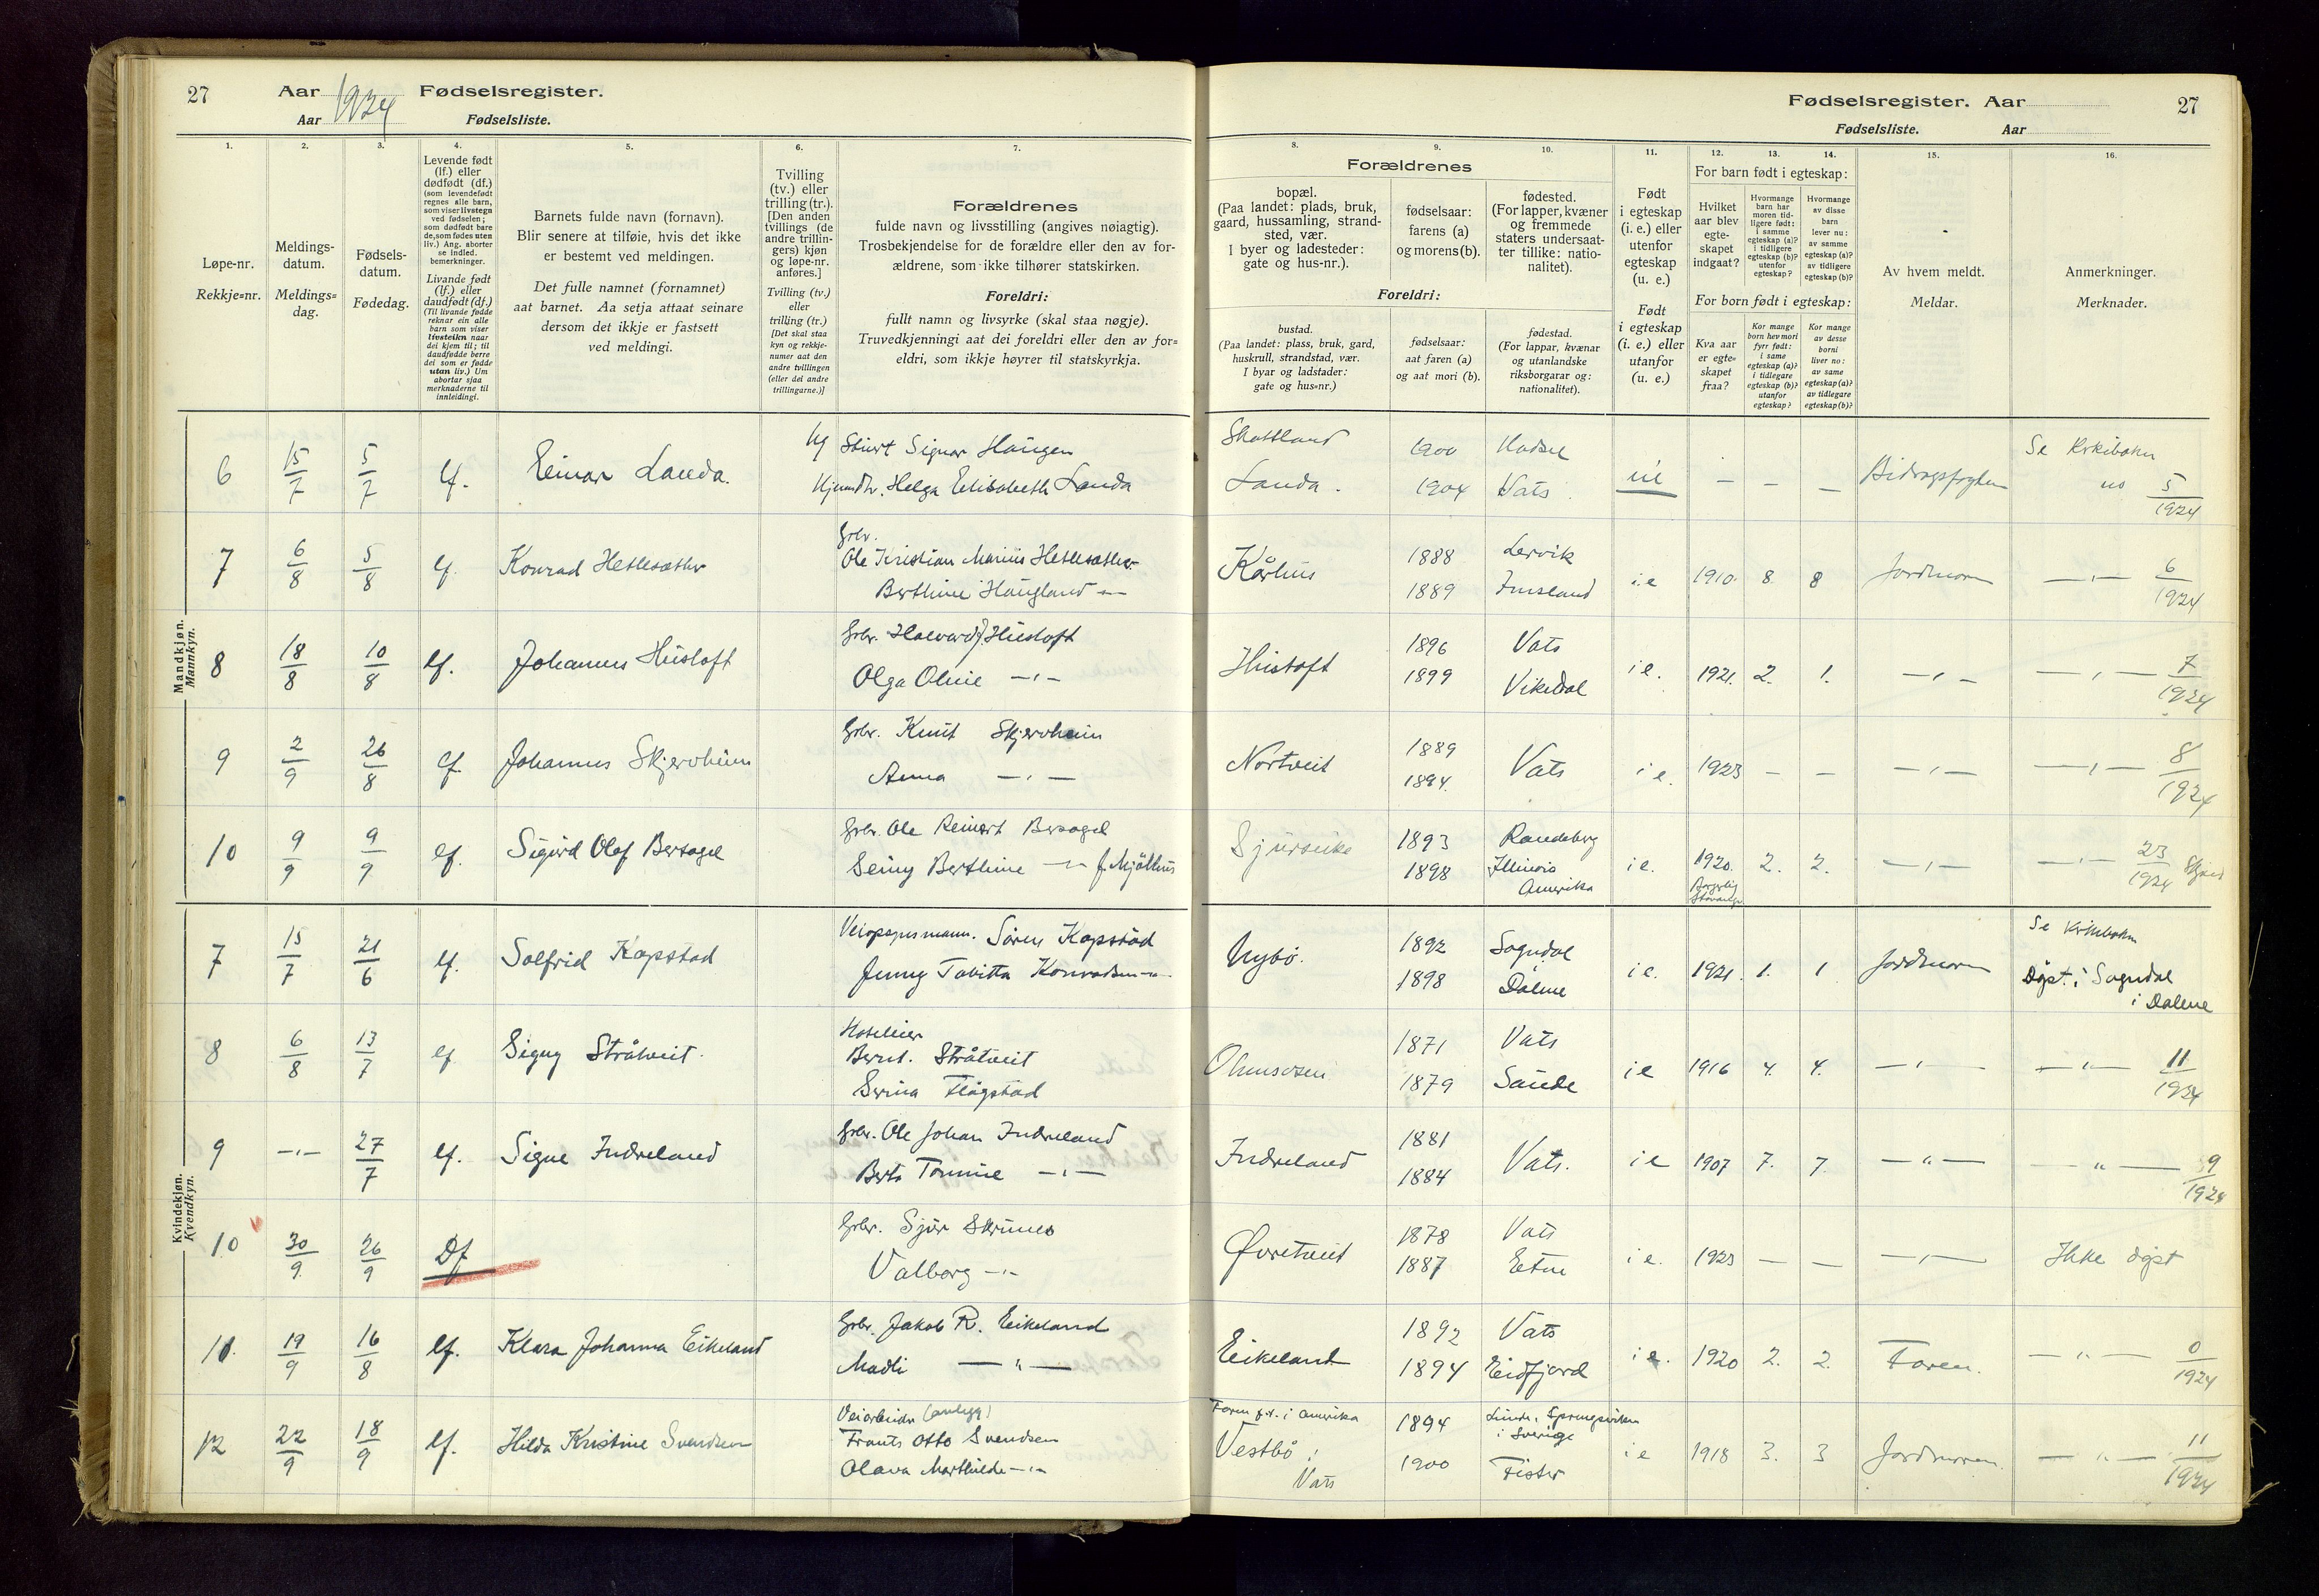 27 Aar 1924 Fødselsregister.
Aar Fødselsliste.
Fødselsregister. Aar 27
Fødselsliste. Aar
1. 2. 3. 4. 5. 6. 7. 8. 9. 10. 11. 12. 13. 14. 15. 16.
Løpe-nr.
Rekkje=nr.
Meldings-
datum.
Meldings=
dag.
Fødsels-
datum.
Fødedag.
Levende født
(lf.) eller
dødfødt (df.)
(som levendefødt
regnes alle barn,
som viser livstegn
ved fødselen;
som dødfødt bare
de, som fødes uten
liv.) Ang. aborter
se indled.
bemerkninger.
Livande født
(lf.) eller
daudfødt (df.)
(Til livande fødde
reknar ein alle
barn som viser
livsteikn naar
dei kjem til; til
daudfødde berre
dei som er fødde
utan liv.) Um
abortar sjaa
merknaderne til
innleidingi.
Barnets fulde navn (fornavn).
Blir senere at tilføie, hvis det ikke
er bestemt ved meldingen.
Det fulle namnet (fornamnet)
aat barnet. Aa setja attaat seinare
dersom det ikkje er fastsett
ved meldingi.
Tvilling
(tv.) eller
trilling (tr.).
[Den anden
tvillings (de
andre trillin-
gers) kjøn
og løpe-nr.
anføres.]
Tvilling (tv.)
eller
trilling (tr.)
[Det skal staa
kyn og rekkje-
numer aat den
andre tvillingen
(eller dei andre
trillingarne.)]
Forældrenes
fulde navn og livsstilling (angives nøiagtig).
Trosbekjendelse for de forældre eller den av for-
ældrene, som ikke tilhører statskirken.
Foreldri:
fullt namn og livsyrke (skal staa nøgje).
Truvedkjenningi aat dei foreldri eller den av for=
eldri, som ikkje høyrer til statskyrkja.
Forældrenes
bopæl.
(Paa landet: plads, bruk,
gaard, hussamling, strand-
sted, vær.
I byer og ladesteder:
gate og hus-nr.).
fødselsaar:
farens (a)
og morens (b).
fødested.
(For lapper, kvæner
og fremmede
staters undersaat-
ter tillike: natio-
nalitet).
Foreldri:
bustad.
(Paa landet: plass, bruk, gard,
huskrull, strandstad, vær.
I byar og ladstader:
gate og hus=nr.)
fødselsaar:
aat faren (a)
og aat mori (b).
fødestad.
(For lappar, kvænar
og utanlandske
riksborgarar og:
nationalitet).
Født
i egteskap
(i. e.) eller
utenfor
egteskap
(u. e.)
Født
i egteskap
(i. e.) eller
utanfor
(u. e.)
For barn født i egteskap:
Hvilket
aar blev
egte-
skapet
indgaat?
Hvormange
barn har
moren tid-
ligere født:
i samme
egteskap (a)?
i tidligere
egteskap (b)?
utenfor
egteskap?
Hvormange
av disse
barn
lever nu:
av samme
egteskap (a)?
av tidligere
egteskap (b)?
For born født i egteskap:
Kva aar
er egte=
skapet
fraa?
Kor mange
born hev mori
fyrr født:
i same
egteskap (a)?
i tidlegare
egteskap (b)?
utanfor
egteskap?
Kor mange
av desse
borni
liver no:
av same
egteskap (a)?
av tidlegare
egteskap (b)?
Av hvem meldt.
Meldar.
Anmerkninger.
Merknader.
Mandkjøn.
Mannkyn.
6 15/7 5/7 lf. Einar Landa. Sigvar Haugen 1900 Se Kirkeboken
Helga Elisabeth Landa Landa. 1904 Vats. – – – Bidragsfogden no 5/1924
Gbr.
7 6/8 5/8 lf. Konrad Hetlesæther Ole Kristian Marius Hetlesæther Kårhus 1888 Lervik i.e 1910. 8. 8 Jordmoren —„— 6/1924
Berthine Haugland —„— 1889 Imsland
8 18/8 10/8 lf. Johannes Hustoft Gbr. Halvard J. Hustoft Hustoft 1896 Vats i e. 1921. 2. 1. —„— —„— 7/1924
Olga Oline —„— 1899 Vikedal
9 2/9 26/8 lf. Johannes Skjervheim Gbr. Knut Skjervheim Nortveit 1889 Vats i e. 1923 – – —„— —„— 8/1924
Anna —„— 1894.
10 9/9 9/9 lf. Sigurd Olaf Bersagel Gbr. Ole Reinert Bersagel 1893 Randeberg i e. 1920. 2. 2. —„— —„— 23/1924
Berthine —„— f. Mjølhus 1898 Illinois
Amerika Borgerlig
Kvindekjøn.
Kvendkyn.
7 15/7 21/6 lf. Solfrid Kapstad Søren Kapstad Nybø. 1892 Sogndal i e. 1921. 1. 1 Jordmoren Se Kirkeboken
Jenny Tabitta Konradsen —„— 1898 Dalene Døpt i Sogndal
i Dalene
8 6/8 13/7 lf Signy Stråtveit. Hotelleier
Bernt. Stråtveit 1871 Vats i e 1916 4. 4. —„— —„— 11/1924
Serina Flågstad 1879 Saude
9 —„— 27/7 lf. Signe Indreland Gbr. Ole Johan Indreland Indreland 1881 Vats. i e 1907 7. 7. —„— —„— 9/1924
Berta Tomine —„— 1884
10 30/9. 26/9 Df Gbr. Sjur Skrunes Øvretveit 1878 Vats i e. 1923 — — —„— Ikke døpt
Valborg —„— 1887 Etne
11. 19/9 16/8 lf. Klara Johanna Eikeland Gbr. Jakob R. Eikeland Eikeland 1892 Vats i e. 1920 2. 2. Faren. —„— 0/1924
Madli —„— 1894 Eidfjord
12 22/9 18/9 lf. Hilda Kristine Svendsen Veiarbeider (anlegg) Faren f.t. i Amerika
Frants Otto Svendsen Vestbø, 1894 i Sverige i e 1918 3. 3 Jordmoren. —„— 11/1924
Olava Marthilde —„— Vats 1900 Fister